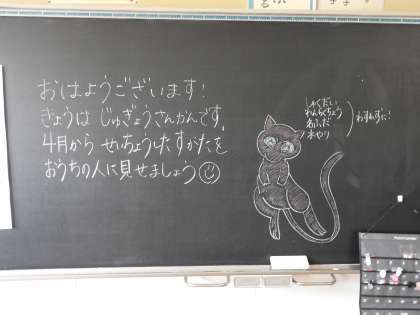 おはようございます!
きょうは じゅぎょうさんかんです。
4月から せいちょうしたすがたを
おうちの人に見せましょう
しゅくだい
れんらくちょう
名ふだ
水やり
わすれずに!